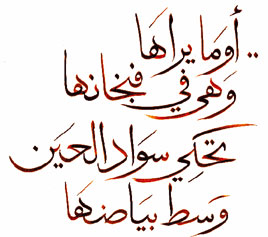 .. أوما يراها
وهي في فنجانها
تحكي سواد العين
وسط بياضها